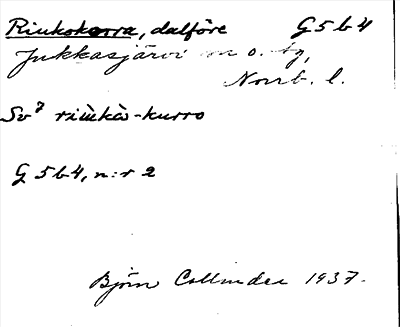 Riukokorra, dalföre G5b4
Jukkasjärvi sn o. tg,
Norrb. l.
Sv⁷ rìŭkò-kurro
G5b4, n:r 2
Björn Collinder 1937.